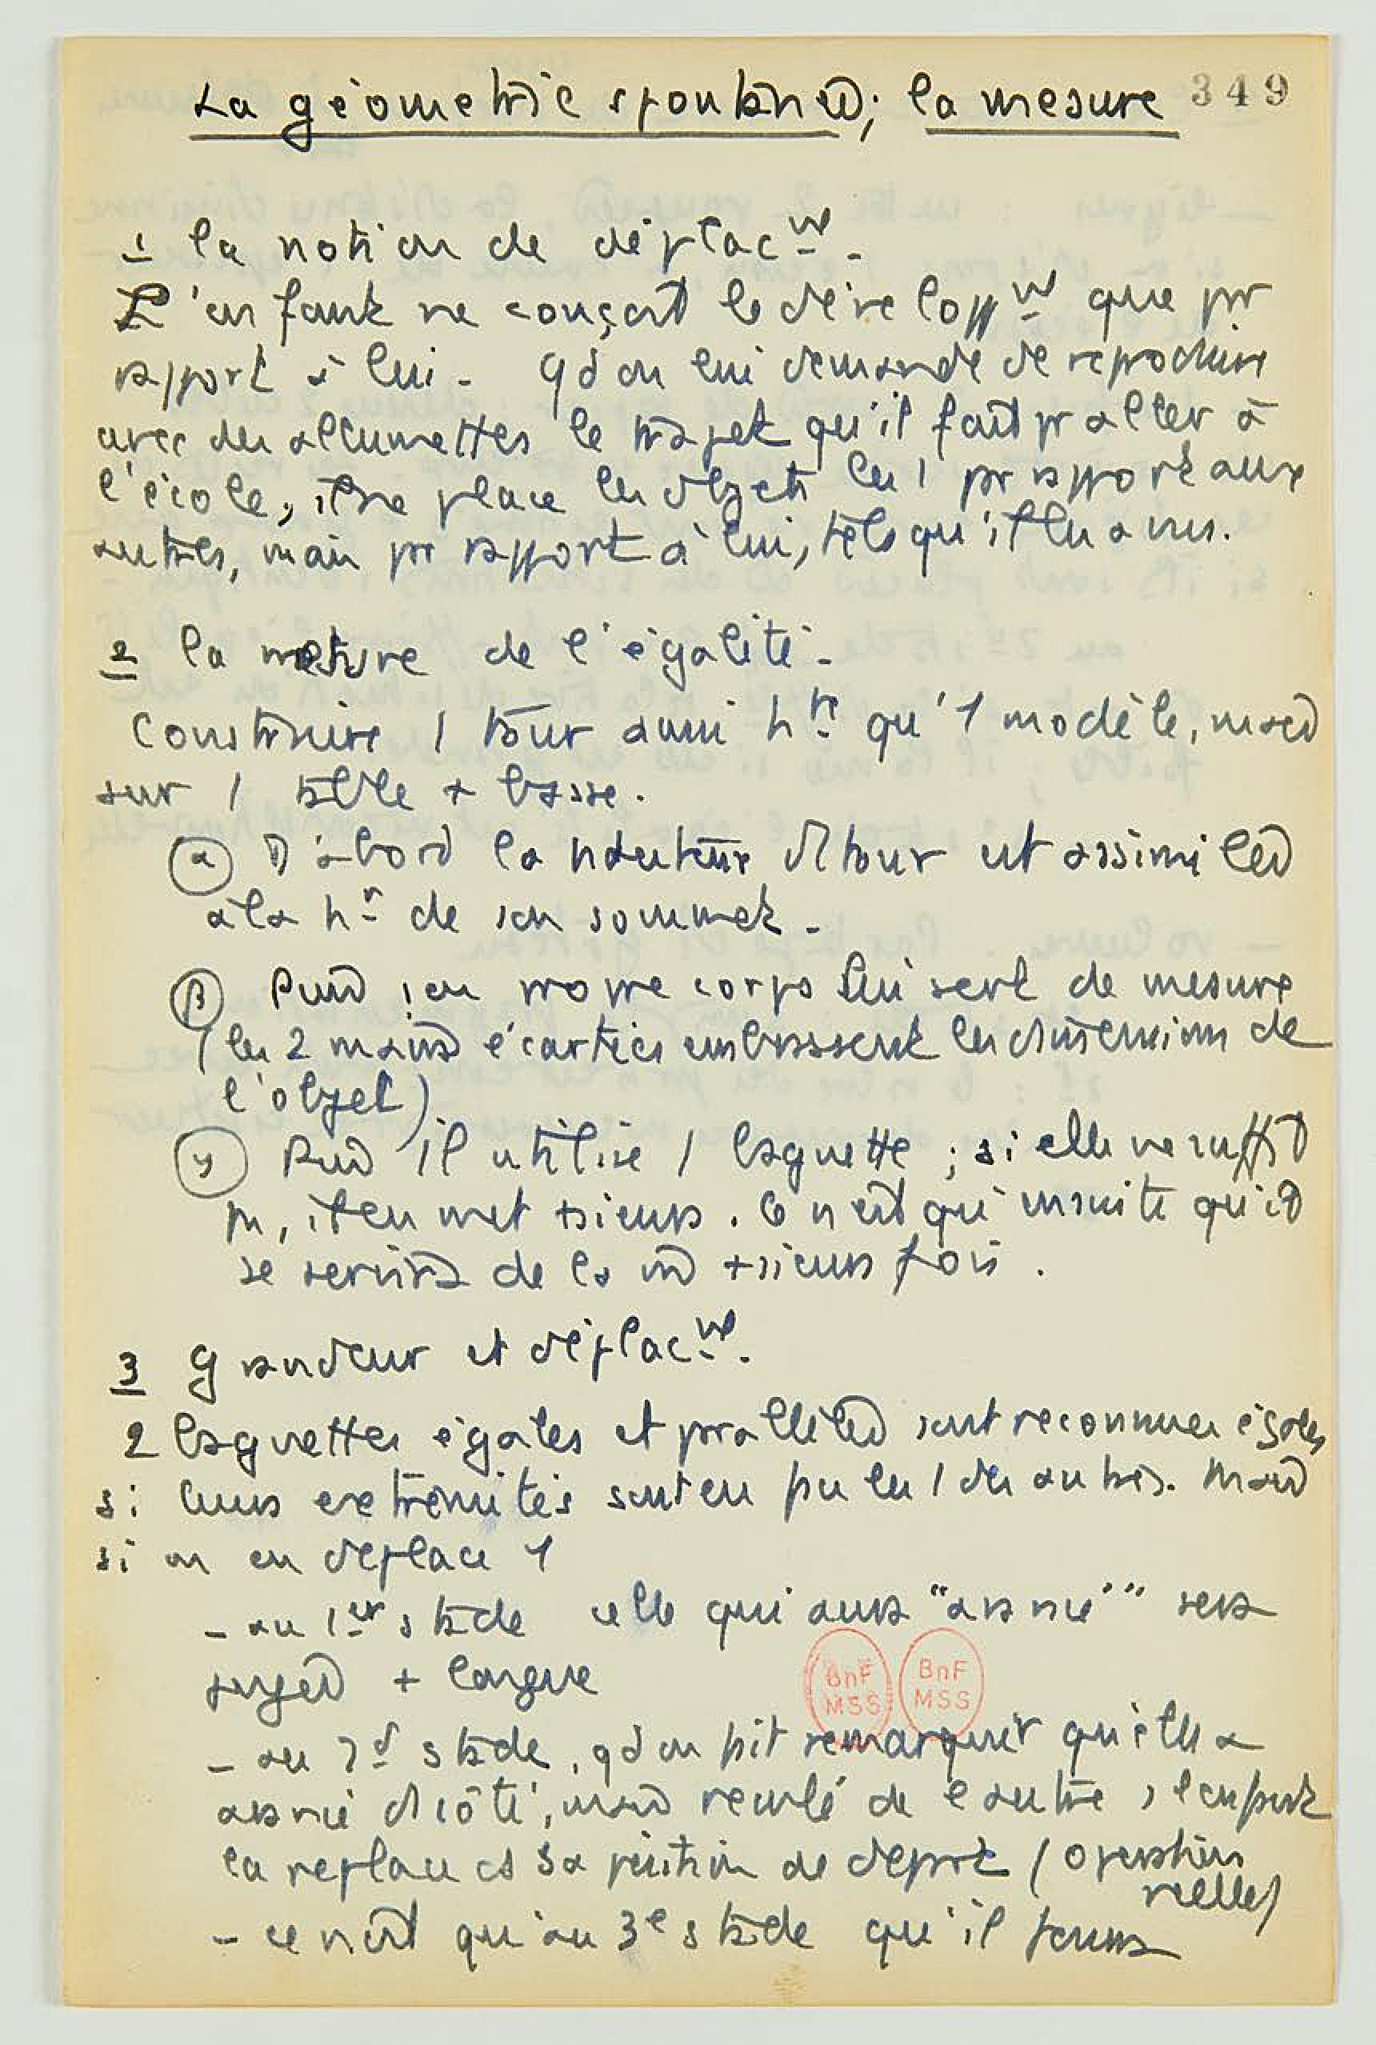 La géométrie spontanée; la mesure 349
1 la notion de déplac^nt.
L'enfant ne conçoit le développ^nt que pr
rapport à lui. Qd on lui demande de reproduire
avec des allumettes le trajet qu'il fait pr aller à
l'école, il ne place les objets les 1 pr rapport aux
autres, mais pr rapport à lui, tels qu'il les a vus.
2 la mesure de l'égalité.
Construire 1 tour aussi h^te qu'1 modèle, mais
sur 1 table + basse.
(α) D'abord la hauteur d tour est assimilée
à la h^r de son sommet.
(β) Puis son propre corps lui sert de mesure
(les 2 mains écartées embrassent les dimensions de
l'objet).
(γ) Puis il utilise 1 baguette ; si elle ne suffit
pas, il en met +sieurs. Ce n'est qu'ensuite qu'il
se servira de la m̂ +sieurs fois.
3 Grandeur et déplac^nt.
2 baguettes égales et parallèles sont reconnues égales
si leurs extrémités sont en face les 1 des autres. Mais
si on en déplace 1
- au 1^er stade celle qui aura "avancé" sera
jugée + longue
- au 2^d stade, qd on fait remarquer qu'elle a
avancé d'1 côté, mais reculé de l'autre, l'enfant
la replace ds sa position de départ (opération
réelle)
- ce n'est qu'au 3^e stade qu'il
BnF
MSS
BnF
MSS